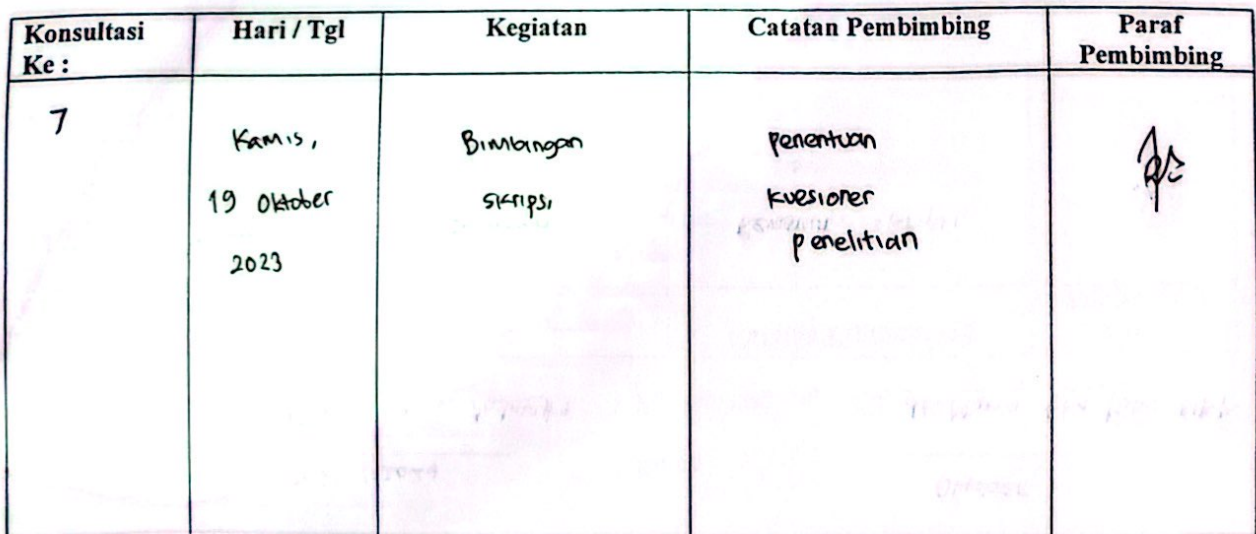 Konsultasi Ke :
Hari / Tgl
Kegiatan
Catatan Pembimbing
Paraf Pembimbing
7
Kamis,
19 Oktober
2023
Bimbingan
Skripsi
penentuan
kuesioner
penelitian